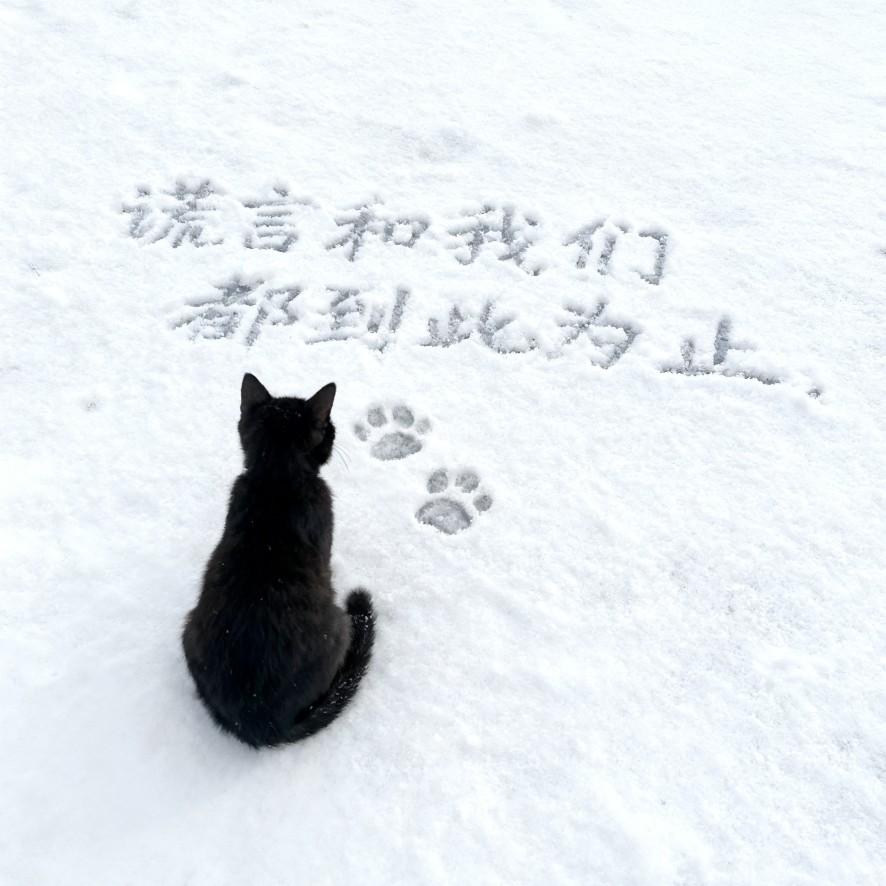 谎言和我们
都到此为止.